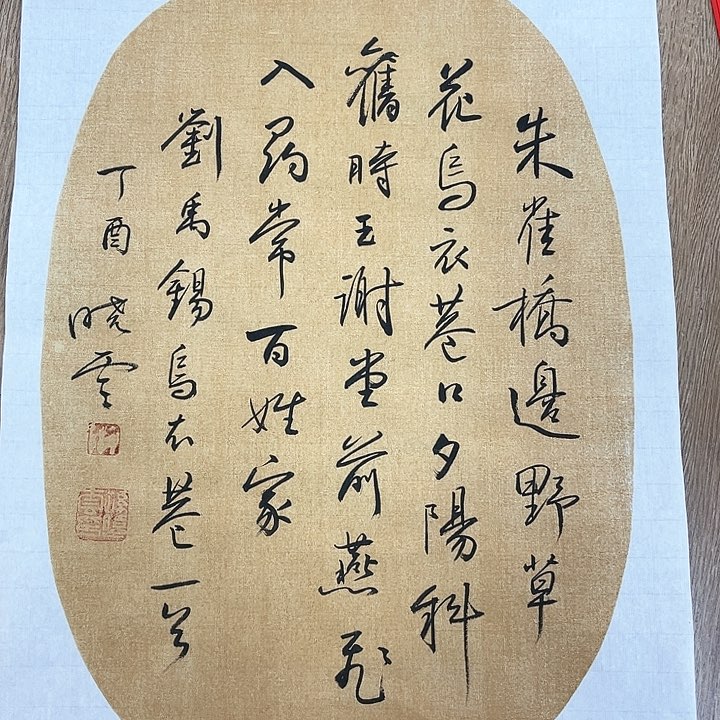 朱雀橋邊野草
花烏衣巷口夕陽斜
舊時王謝堂前燕飛
入尋常百姓家
劉禹錫烏衣巷一首
丁酉 晓雲